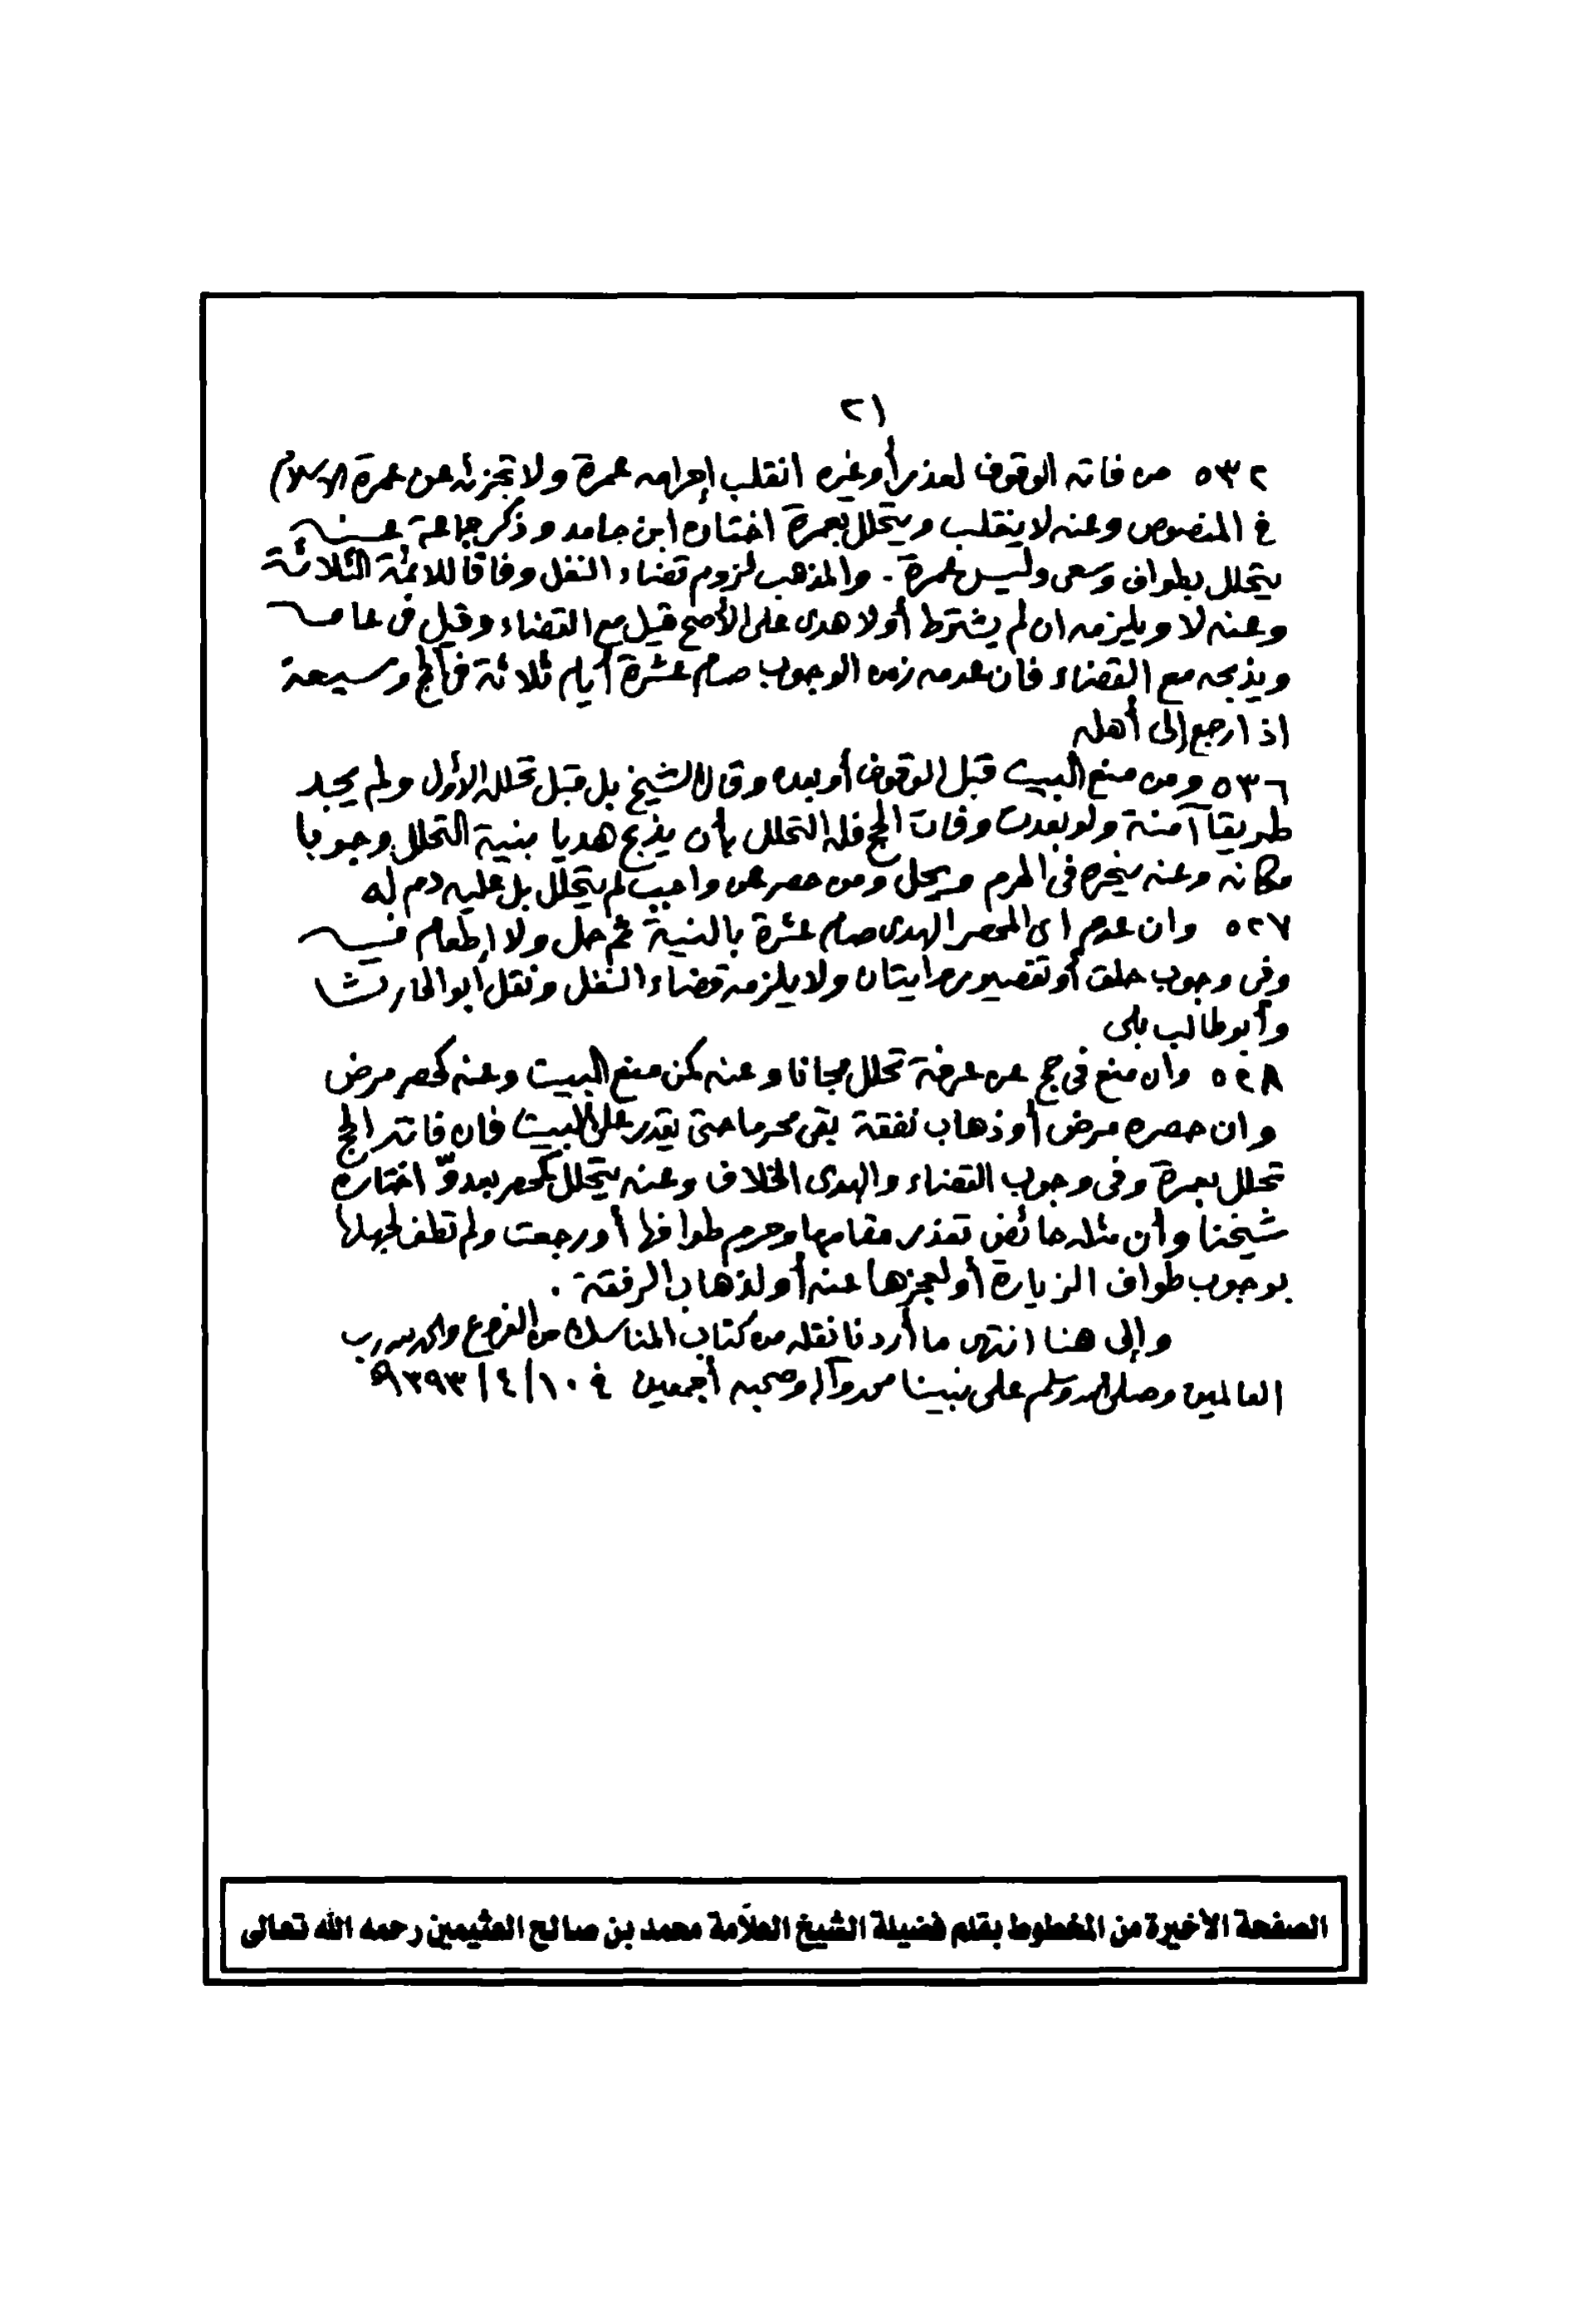 ٢١
٥٣٢ من فاته الوقوف لعذر أو غيره انقلب إحرامه عمرة ولا تجزئه عن عمرة الإسلام
في المنصوص وعنه لا ينقلب ويتحلل بعمرة اختاره ابن حامد وذكر جماعة عنه
يتحلل بطواف وسعى وليس عمرة . والمذهب لزوم قضاء النفل وفاقا للائمة الثلاثة
وعنه لا ويلزمه ان لم يشترط أولا هدى على الأصح قيل مع القضاء وقيل في عامه
ويذبحه مع القضاء فان عدمه زمن الوجوب صام عشرة أيام ثلاثة في الحج وسبعة
اذا رجع إلى أهله
٥٣٦ ومن منع البيت قبل الوقوف أو بعده وقال الشيخ بل قبل تحلله الأول ولم يجد
طريقا آمنة ولو بعدت وفات الحج فله التحلل بأن يذبح هديا بنية التحلل وجوبا
مكانه وعنه ينحره في الحرم ويحل ومن حصر عن واجب لم يتحلل بل عليه دم له
٥٢٧ وان عدم اى المحصر الهدى صام عشرة بالنية ثم حل ولا إطعام فيه
وفي وجوب حلق أو تقصير روايتان ولا يلزمه قضاء النفل ونقل أبو الحارث
وأبو طالب بلى
٥٢٨ وان منع في حج عن عرفة تحلل مجانا وعنه كمن منع البيت وعنه كحصر مرض
وان حصره مرض أو ذهاب نفقة بقى محرما حتى يقدر على البيت فان فاته الحج
تحلل بعمرة وفي وجوب القضاء والهدى الخلاف وعنه يتحلل كمحصر بعدوّ اختاره
شيخنا وأن مثله حائض تعذر مقامها وحرم طوافها أو رجعت ولم تطف لجهلها
بوجوب طواف الزيارة أو لعجزها عنه أو لذهاب الرفقة .
وإلى هنا انتهى ما أردنا نقله من كتاب المناسك من الفروع والحمد لله رب
العالمين وصلى الله وسلم على نبينا محمد وآله وصحبه أجمعين في ١٠/٤/١٣٩٣ه
الصفحة الأخيرة من المخطوط بقلم فضيلة الشيخ العلاّمة محمد بن صالح العثيمين رحمه الله تعالى